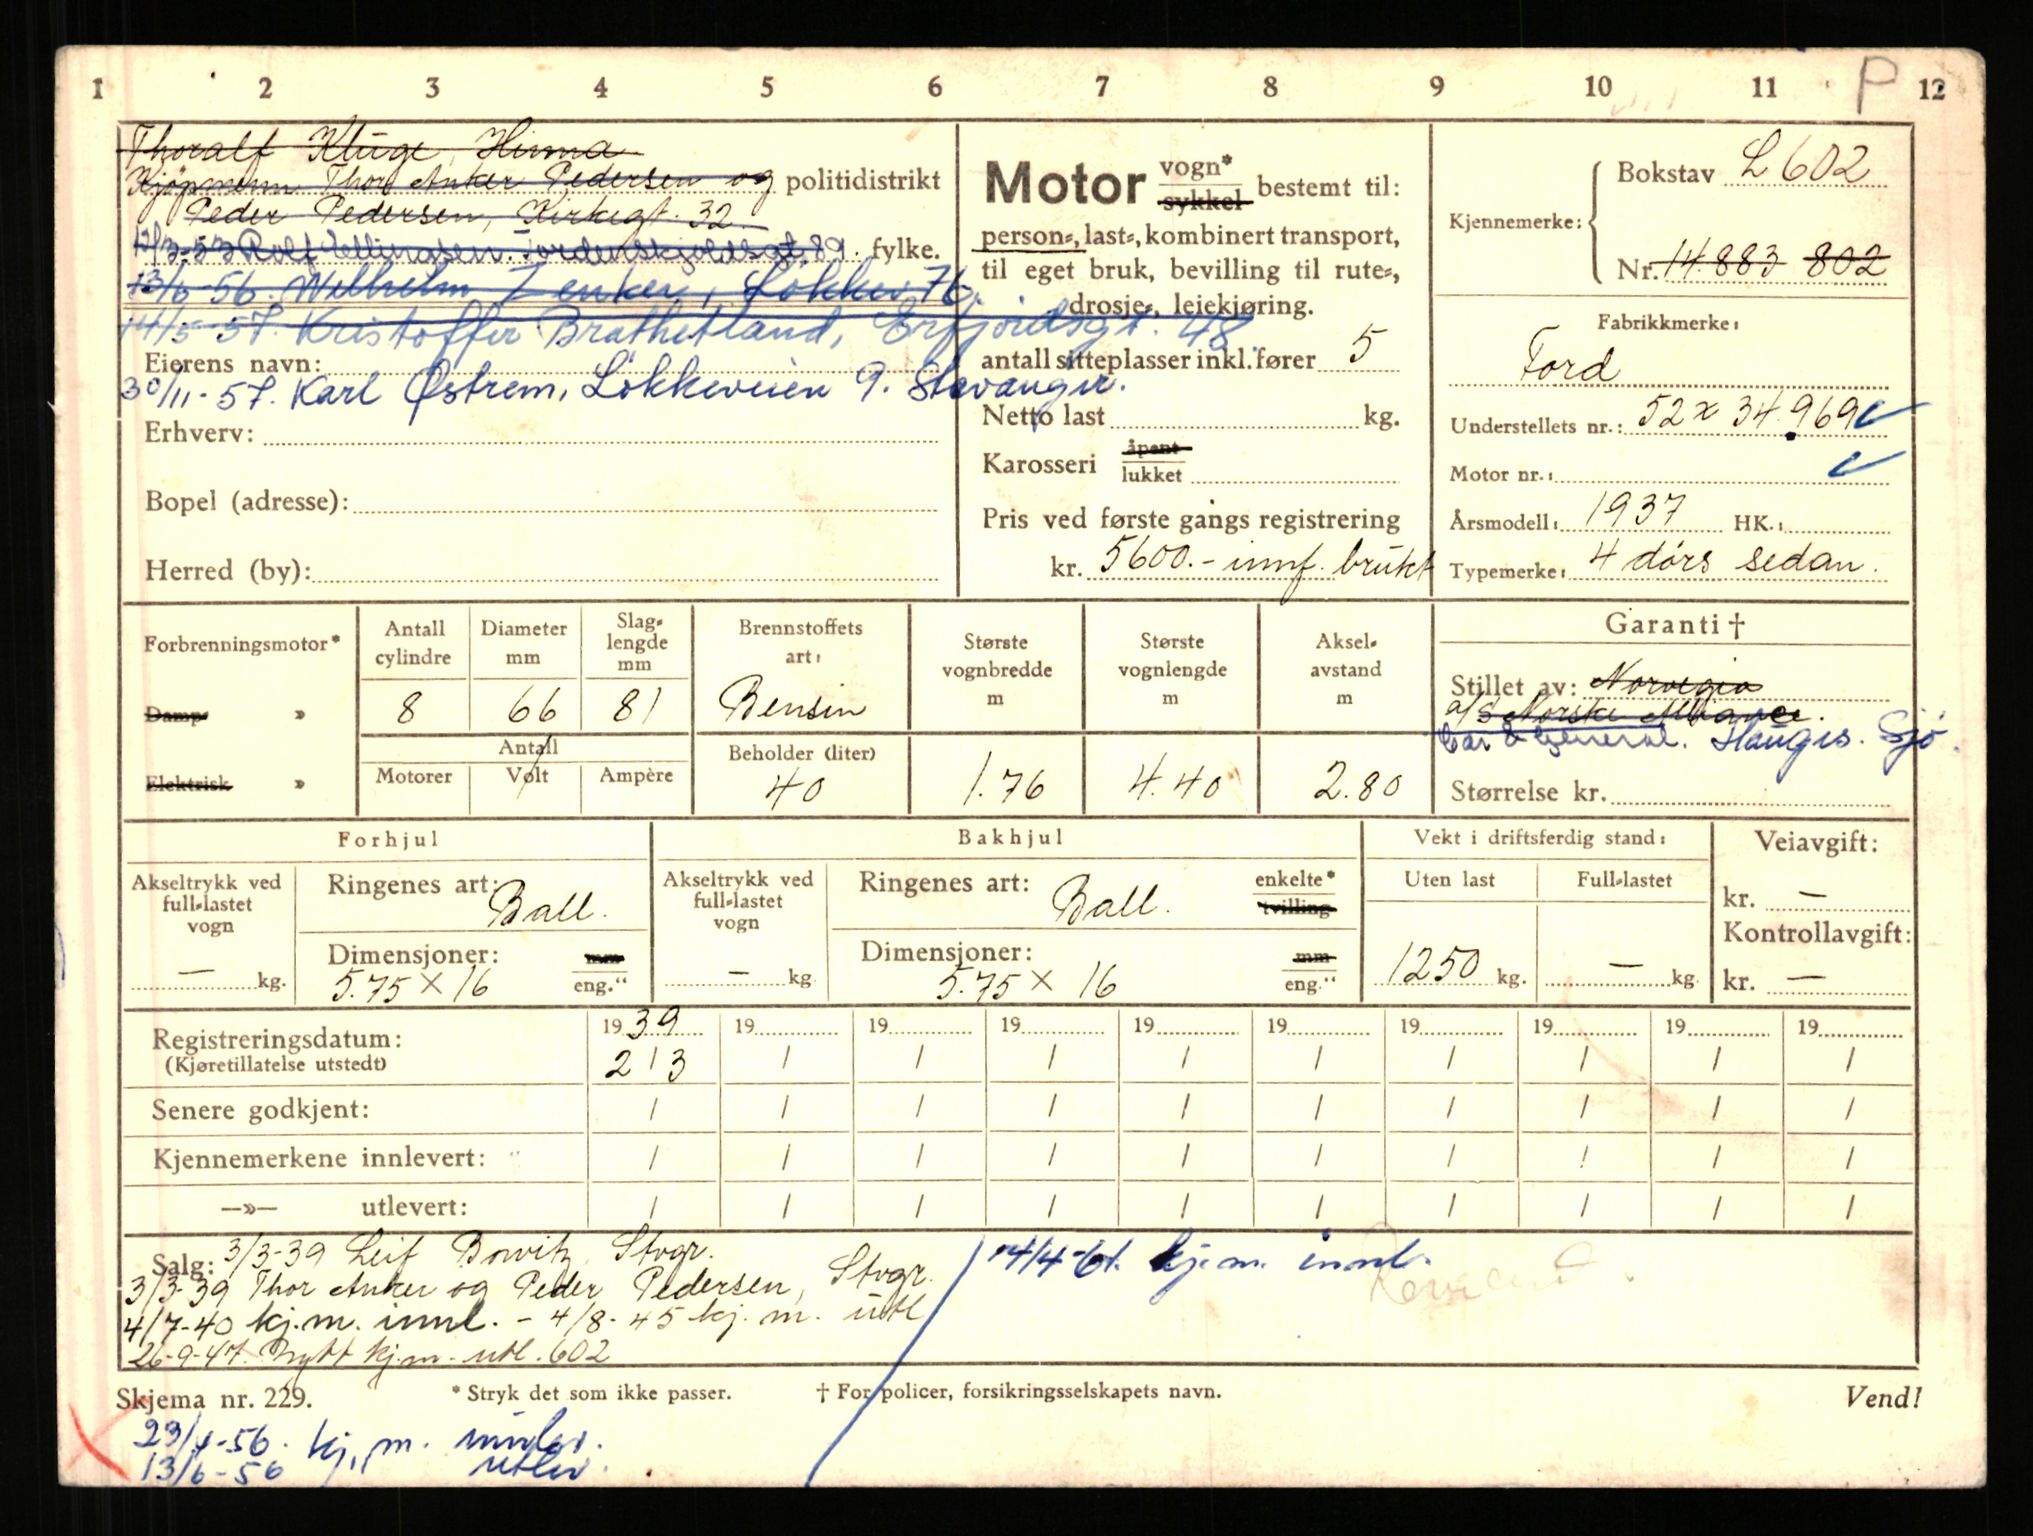 1 2 3 4 5 6 7 8 9 10 11 12
P
Thoralf Kluge, Hinna
Kjøpmenn Thor Anker Pedersen og politidistrikt
Peder Pedersen, Kirkegt. 32
13/3-53 Rolf Ellingsen. Tordenskjoldsgt. 89. fylke.
13/6-56. Wilhelm Zenker, Løkkev. 76.
14/5-57. Kristoffer Brathetland, Erfjordsgt. 48
Eierens navn:
30/11-57. Karl Østrem, Løkkeveien 9. Stavanger.
Erhverv:
Bopel (adresse):
Herred (by):
Motor vogn* sykkel bestemt til:
person-, last-, kombinert transport,
til eget bruk, bevilling til rute-,
drosje-, leiekjøring.
antall sitteplasser inkl. fører 5
Netto last kg.
Karosseri åpent lukket
Pris ved første gangs registrering
kr. 5600.- innf. brukt
Kjennemerke:
Bokstav L 602
Nr. 14.883 802
Fabrikkmerke:
Ford
Understellets nr.: 52 x 34.969
Motor nr.:
Årsmodell: 1937 HK.:
Typemerke: 4 dörs sedan.
Forbrenningsmotor*
Damp- »
Elektrisk »
Antall cylindre
8
Diameter mm
66
Slag-lengde mm
81
Antall
Motorer Volt Ampère
Brennstoffets art:
Bensin
Beholder (liter)
40
Største vognbredde m
1.76
Største vognlengde m
4.40
Aksel-avstand m
2.80
Garanti †
Stillet av: Norvegia
a/s Norske Alliance.
Car & General. Hauges. Sjø.
Størrelse kr.
Forhjul
Akseltrykk ved full-lastet vogn
— kg.
Ringenes art: Ball.
Dimensjoner: mm
5.75 x 16 eng."
Bakhjul
Akseltrykk ved full-lastet vogn
— kg
Ringenes art: Ball. enkelte* tvilling
Dimensjoner: mm
5.75 x 16 eng."
Vekt i driftsferdig stand:
Uten last Full-lastet
1250 kg. — kg.
Veiavgift:
kr. —
Kontrollavgift:
kr. —
Registreringsdatum: 19 39 19 19 19 19 19 19 19 19 19
(Kjøretillatelse utstedt) 2 / 3 / / / / / / / / /
Senere godkjent: / / / / / / / / / /
Kjennemerkene innlevert: / / / / / / / / / /
—»— utlevert: / / / / / / / / / /
Salg: 3/3-39 Leif Bowitz, Stvgr.
3/3-39 Thor Anker og Peder Pedersen, Stvgr.
4/7-40 kj.m. innl. - 4/8-45 kj. m. utl
26-9-47. Nytt kj.m. utl. 602
14/4-61. kj.m. innl.
Skjema nr. 229. * Stryk det som ikke passer. † For policer, forsikringsselskapets navn. Vend!
23/4-56. kj. m. innlev.
13/6-56 utlev.